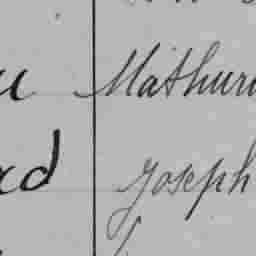 u Mathuri
rd Joseph